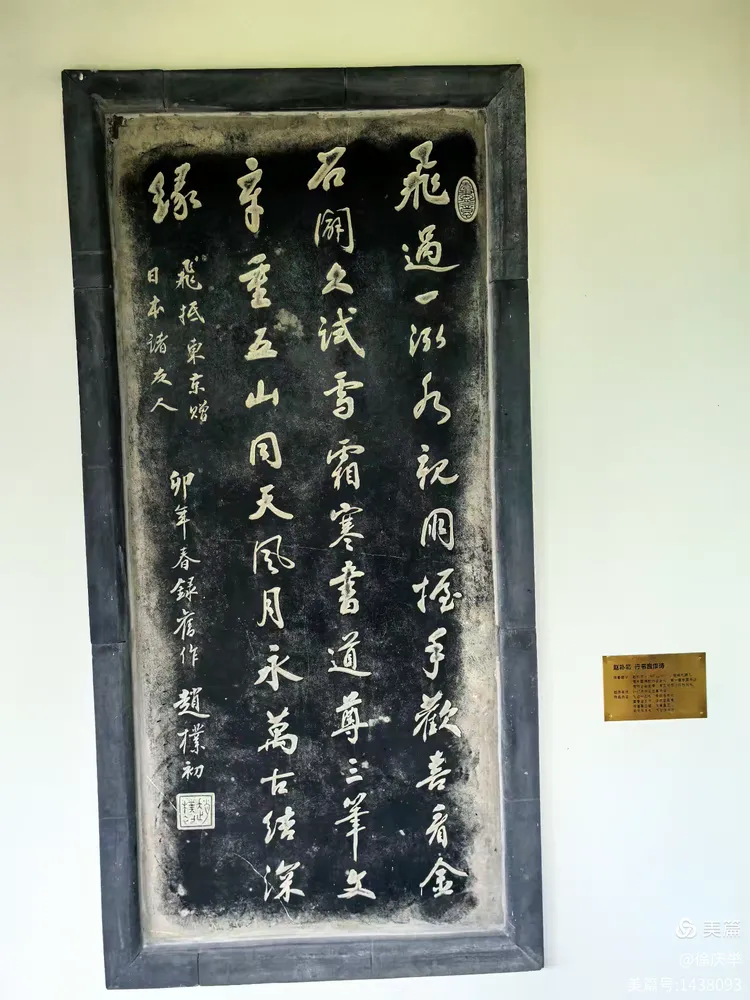 飛過一泓水親朋握手歡喜看金
石開久試雪霜寒書道尊三筆文
章重五山同天風月永萬古結深
緣
飛抵東京贈
日本諸友人
卯年春録舊作 趙樸初
赵朴初 行书
美篇
美篇号:1438093